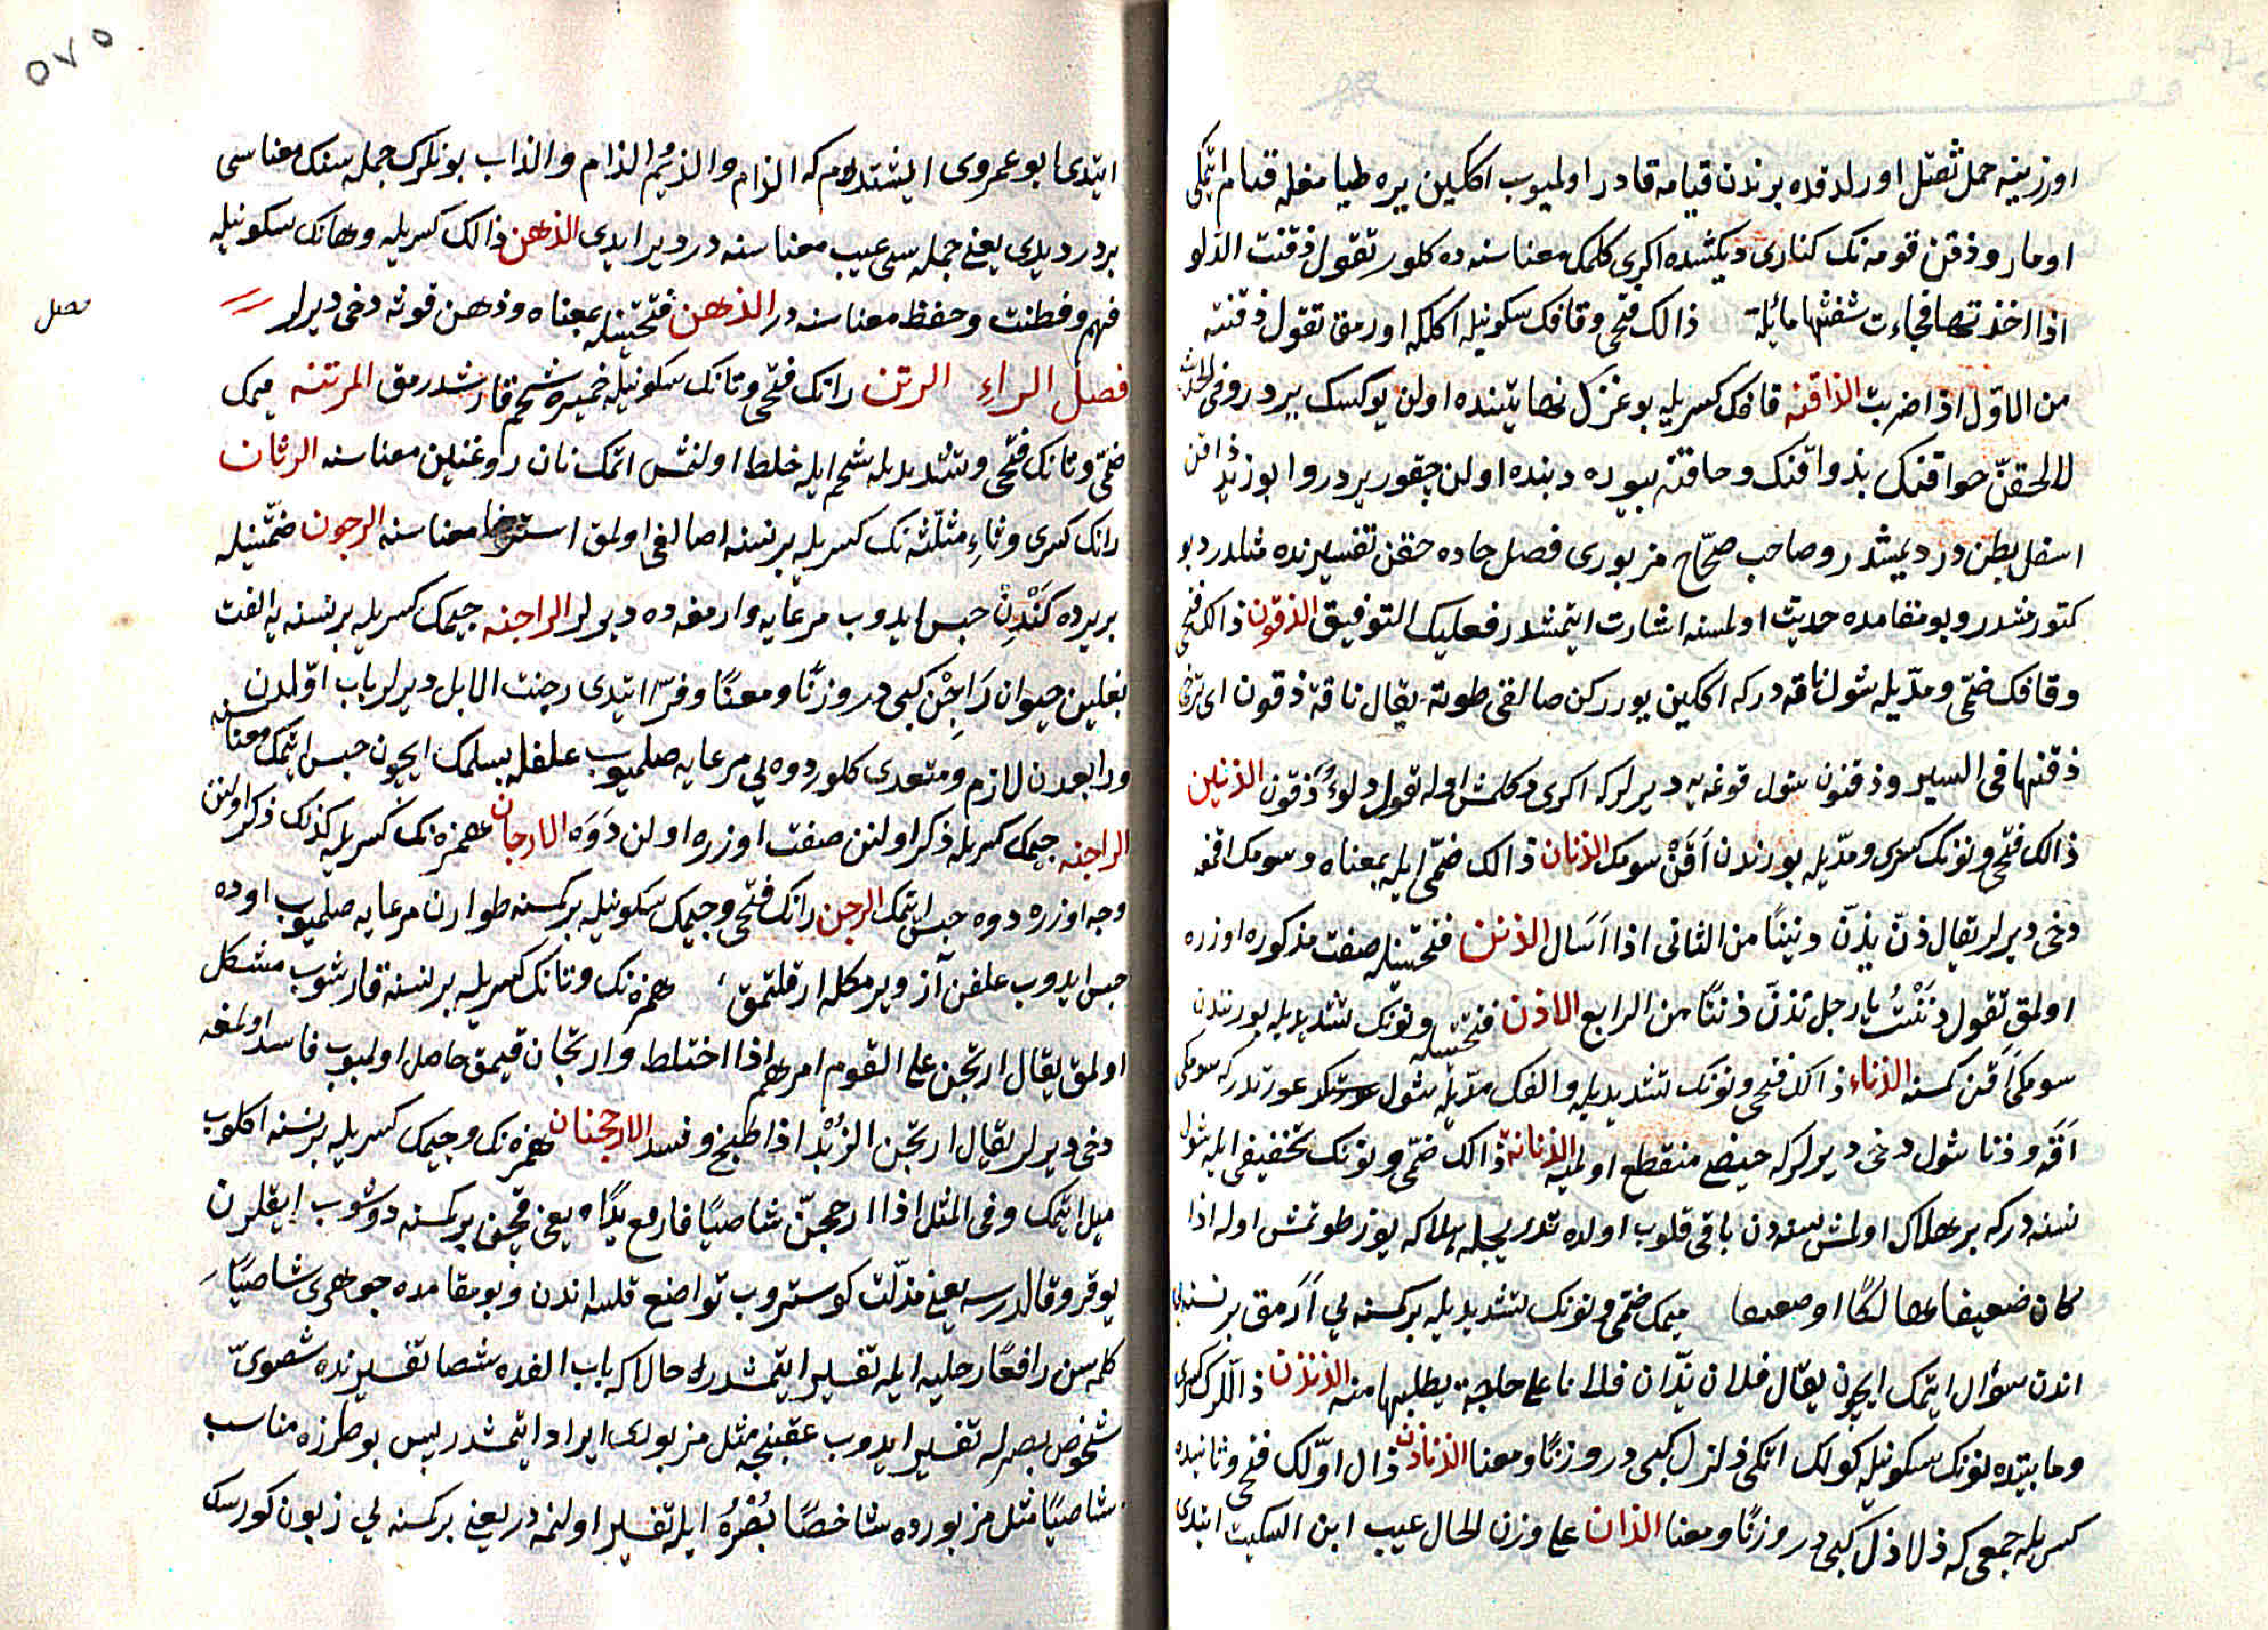 اوزرينه حمل ثقيل اورلدقده برندن قيامه قادر اولميوب اككين يره طيامغله قيام ايتمكى
اومار و ذقن قومه نك كنارى ديكشده اكرى كلمك معناسنه ده كلور تقول ذقنت الدلو
اذا اخذتها فجاءت شفتها مائلة ذالك فتحى وقافك سكونيله اككله اورمق تقول ذقنته
من الاول اذا ضربت الذاقنه قافك كسريله بوغزك نهايتنده اولن يوكسك يردر وفى الحديث
لالحقنّ حواقنك بذواقنك وحاقنه بيوده دبنده اولن چقور يردر و ابوزيد ذاقن
اسفل بطن در ديمشدر وصاحب صحاح مزبورى فصل حاده حقن تفسيرنده مثلدر ديو
كتورمشدر وبو مقامده حديث اولمسنه اشارت ايتمشدر فعليك التوفيق الذقون ذالك فتحى
وقافك ضمى ومديله شول ناقه در كه اككين يوررکن صالقى طوته يقال ناقة ذقون اى ترخى
ذقنها فى السير وذقنون شول قوغه يه ديرلر كه اكرى دكلمش اوله تقول دلوٌ ذقون الذنين
ذالك فتحى ونونك كسرى ومديله بورندن اَقَنْ سومك الذنان ذالك ضمى ايله بمعناه وسومك اقمغه
دخى ديرلر يقال ذنّ يذنّ ذنينًا من الثانى اذا سال الذنن فتحتينله صفت مذكوره اوزره
اولمق تقول ذننتُ يا رجل تذنّ ذننًا من الرابع الاذن فتحتينله ونونك تشديديله بورنندن
سومكى اَقَن كمسنه الذناء ذالك فتحى ونونك تشديديله والفك مديله شول عورتدر كه سومكى
اَقَه و ذنا شول دخى ديرلر كه حيضى منقطع اولميه الذنانة ذالك ضمى ونونك تخفيفى ايله شول
نسنه در كه بر هلاك اولمش نسنه دن باقى قلوب اولده تدريجله هلاكه يوز طوتمش اوله اذا
كان ضعيفا هالكًا ميمك ضمى ونونك تشديديله بركمسنه يى اَرَمق برنسنه يى
اندن سؤال ايتمك ايچون يقال فلان يذّان فلانا على حاجة يطلبها منه الذنذن ذاللرك كسرى
وما بينده نونك سكونيله كوملك اتكى ذلزل كبى در وزنًا ومعنا الذناذن ذال اوّلك فتحى وثانيده
كسريله جمعى كه ذلاذل كبى در وزنًا ومعنا الذان على وزن الحال عيب ابن السكيت ايتدى
٥٧٥
ايتدى ابو عمروى ايشتدم كه الذام والذيم الذام والذاب بونلرك جمله سنك معناسى
بردر ديدى يعنى جمله سى عيب معناسنه در دير ايدى الذهن ذالك كسريله وهانك سكونيله
فهم وفطنت وحفظ معناسنه در الذهن فتحتينله بمعناه وذهن قوته دخى ديرلر
فصل
فصل الراء الرتن رانك فتحى وتانك سكونيله خميره شحم قارشدرمق المرتنه ميمك
ضمى وتانك فتحى وتشديديله شحم ايله خلط اولنمش اتمك نان روغنين معناسنه الرثان
رانك كسرى وثاء مثلثه نك كسريله برنسنه اصالغى اولمق استرخا معناسنه الرجون ضمتينله
بريرده كَنْدِنْ حبس ايدوب مرعايه وارمغه ده ديرلر الراجنه جيمك كسريله برنسنه يه الفت
بغلين حيوان رَاجِنْ كبى در وزنًا ومعنًا وفرّا ايتدى رجنت الابل ديرلر باب اوّلدن
ورابعدن لازم ومتعدى كلور دوه يى مرعايه صلميوب علفله بسلمك ايچون حبس ايتمك معناسنه
الراجنه جيمك كسريله ذكر اولنن صفت اوزره اولن دَوَه الارجان همزه نك كسريله كذلك ذكر اولنن
وجه اوزره دوه حبس ايتمك الرجن رانك فتحى وجيمك سكونيله بركمسنه طوارن مرعايه صلميوب اوده
حبس ايدوب علفن آز ويرمكله ارقلتمق همزه نك وتانك كسريله برنسنه قارشوب مشكل
اولمق يقال ارتجن على القوم امرهم اذا اختلط وارتجان قيمق حاصل اولميوب فاسد اولمغه
دخى ديرلر يقال ارتجن الزُبْد اذا طبخ وفسد الارجحنان همزه نك وجيمك كسريله برنسنه اكلوب
ميل ايتمك وفى المثل اذا ارجحنّ شاصيًا فارفع يدًا يعنى قچن بركمسنه دوشوب اياقلرن
يوقرو قالدرسه يعنى مذلّت كوستروب تواضع قلسه اندن وبو مقامده جوهرى شاصيًا
كلمه سن رافعًا رجليه ايله تفسير ايتمشدر حال كه باب الفده شصا تفسيرنده شصوىّ
شخوص بصرله تفسير ايدوب عقبنجه مثل مزبورى ايراد ايتمشدر پس بو طرزه مناسب
شاصيًا مثل مزبورده شاخصًا بَصَرُهُ ايله تفسير اولنمه در يعنى بركمسنه يى زبون كورسك